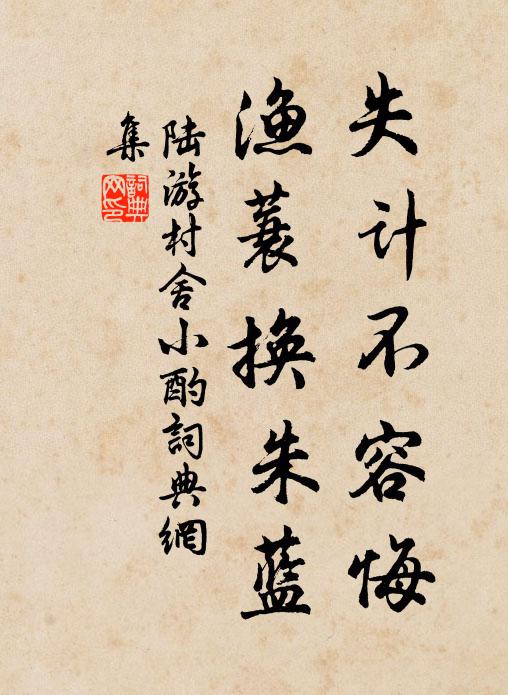 失计不容悔
渔蓑换朱蓝
陆游村舍小酌词典網
集
詞典網印